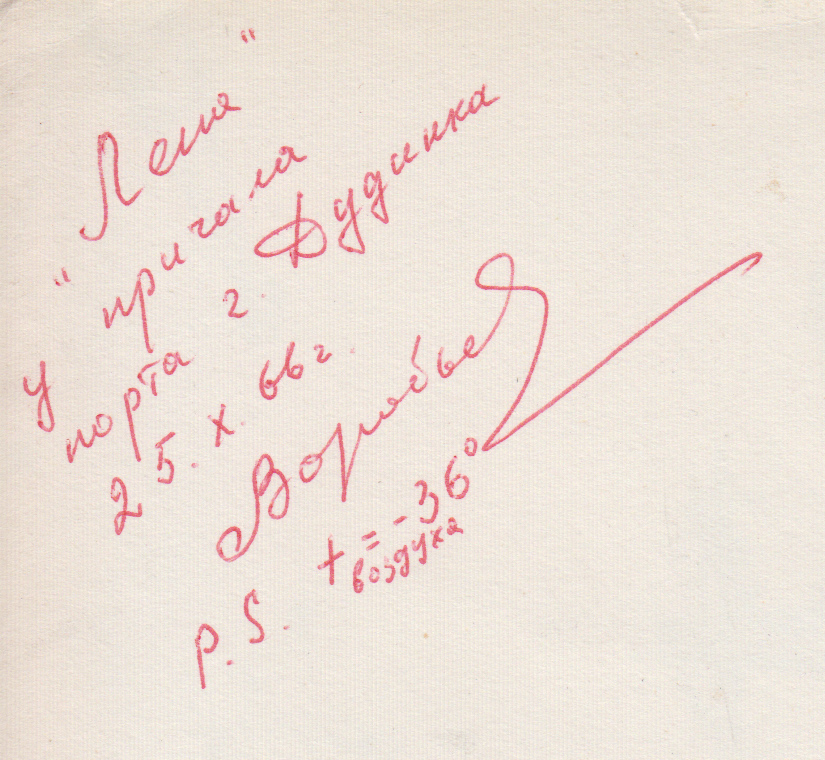 "Лена"
у причала
порта г. Дудинка
25. X. 66 г.
Воробьев
P.S. t воздуха = -36°